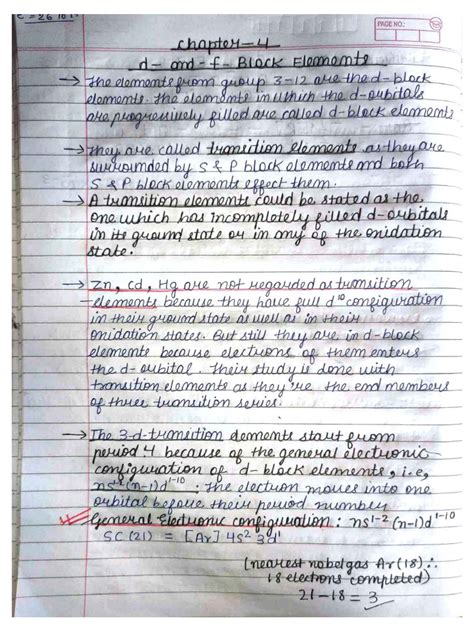 PAGE NO.:
Chapter-4
d- and -f- Block Elements
→ The elements from group 3-12 are the d-block
elements. The elements in which the d-orbitals
are progressively filled are called d-block elements
→ They are called transition elements as they are
surrounded by S & P block elements and both
S & P block elements effect them.
→ A transition elements could be stated as the
one which has incompletely filled d-orbitals
in its ground state or in any of the oxidation
state.
→ Zn, Cd, Hg are not regarded as transition
elements because they have full d¹⁰ configuration
in their ground state as well as in their
oxidation states. But still they are in d-block
elements because electrons of them enters
the d-orbital. Their study is done with
transition elements as they're the end members
of three transition series.
→ The 3-d-transition elements start from
period 4 because of the general electronic
configuration of d-block elements, i.e,
ns¹⁻² (n-1)d¹⁻¹⁰. The electron moves into one
orbital before their period number
General Electronic configuration: ns¹⁻² (n-1)d¹⁻¹⁰
SC (21) = [Ar] 4s² 3d¹
(nearest nobel gas Ar (18) ∴
18 electrons completed)
21-18 = 3